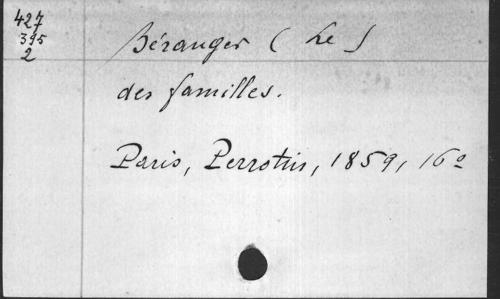 427
395
2
Béranger (Le)
des familles.
Paris, Perrotin, 1859, 16º